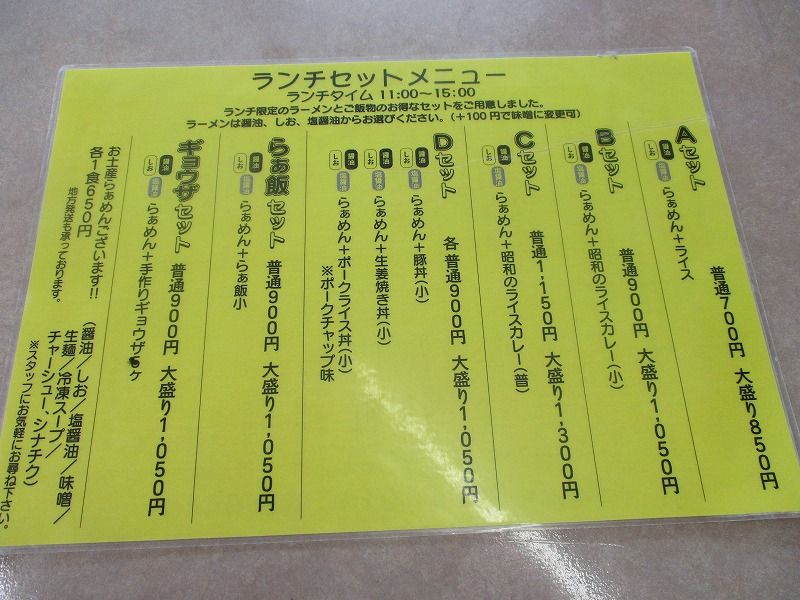 ランチセットメニュー
ランチタイム 11:00～15:00
ランチ限定のラーメンとご飯物のお得なセットをご用意しました。
ラーメンは醤油、しお、塩醤油からお選びください。（＋100円で味噌に変更可）
Aセット
醤油 しお 塩醤油 らぁめん＋ライス
普通700円 大盛り850円
Bセット
醤油 しお 塩醤油 らぁめん＋昭和のライスカレー（小）
普通900円 大盛り1,050円
Cセット
醤油 しお 塩醤油 らぁめん＋昭和のライスカレー（普）
普通1,150円 大盛り1,300円
Dセット
各 普通900円 大盛り1,050円
醤油 しお 塩醤油 らぁめん＋豚丼（小）
醤油 しお 塩醤油 らぁめん＋生姜焼き丼（小）
醤油 しお 塩醤油 らぁめん＋ポークライス丼（小）
※ポークチャップ味
らぁ飯セット
普通900円 大盛り1,050円
醤油 しお 塩醤油 らぁめん＋らぁ飯小
ギョウザセット
普通900円 大盛り1,050円
醤油 しお 塩醤油 らぁめん＋手作りギョウザ5ヶ
お土産らぁめんございます!!
各1食650円
地方発送も承っております。
（醤油／しお／塩醤油／味噌／
生麺／冷凍スープ／
チャーシュー、シナチク）
※スタッフにお気軽にお尋ね下さい。